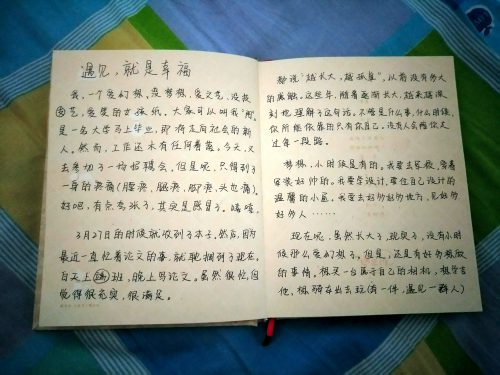 遇见，就是幸福
我，一个爱幻想，没梦想，爱文艺，没技
艺，爱笑的女孩纸。大家可以叫我
是一名大学马上毕业，即将走向社会的新
人。然而，工作还未有任何着落。今天，又
去参加了一场招聘会，但是呢，只得到了
一身的疼痛（腰疼，腿疼，脚疼，头也痛）。
好吧，有点夸张了，其实是感冒了。嘻嘻。
3月27日的时候就收到了本子。然后，因为
最近一直忙着论文的事，就耽搁到了现在。
白天上班，晚上写论文。虽然很忙，但
觉得很充实，很满足。
都说“越长大，越孤单”，以前没有多大
的感触。这些年，随着逐渐长大，越来越深
刻地理解了这句话。不管是什么事，什么时候，
你所能依靠的只有你自己，没有人会陪你走
过每一段路。
梦想，小时候是有的。我要去军校，穿着
军装好帅的。我要学设计，要住自己设计的
温馨的小屋。我要去好多好多地方，见好多
好多人……
现在呢，虽然长大了，现实了，没有小时
候那么爱幻想了。但是，还是有好多想做
的事情。想买一台属于自己的相机，想学吉
他，想骑车出去玩（有一件，遇见一群人）